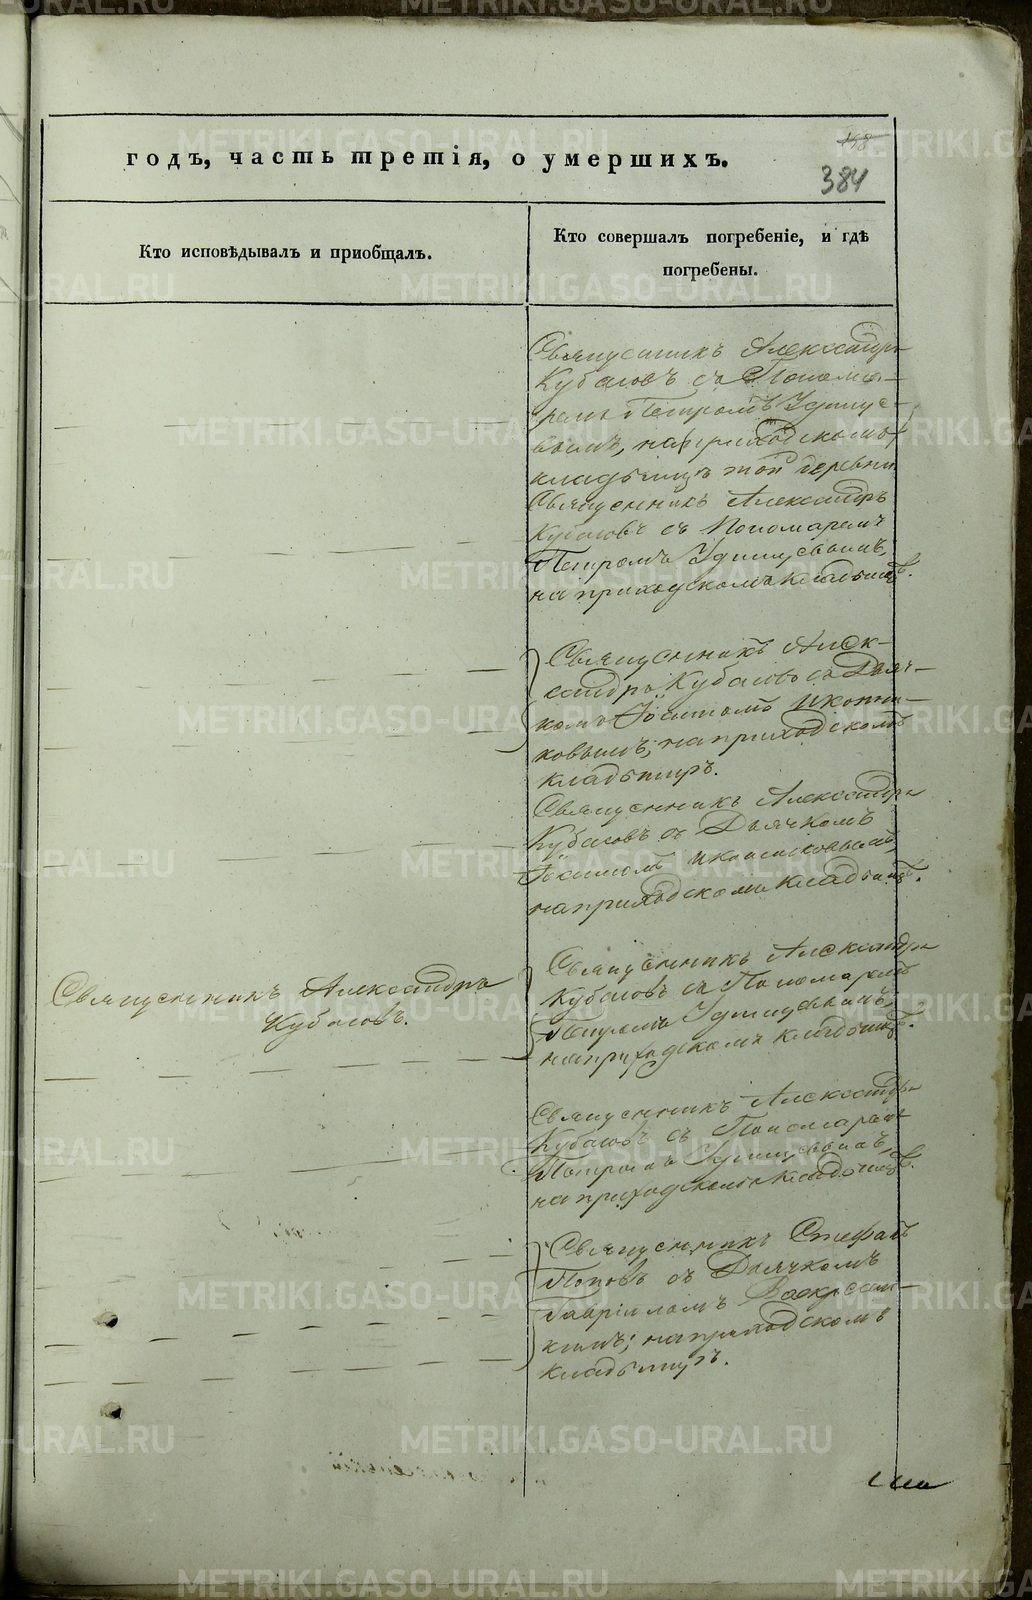 158
384
годъ, часть третія, о умершихъ.
Кто исповѣдывалъ и пріобщалъ.
Кто совершалъ погребеніе, и гдѣ
погребены.
Священникъ Александръ
Кубасовъ съ Понома-
ремъ Петромъ
на приходскомъ
кладбищѣ той деревни
Священникъ Александръ
Кубасовъ съ Пономаремъ
Петромъ
на приходскомъ кладбищѣ.
Священникъ Алек-
сандръ Кубасовъ съ Дьяч-
комъ Іокимомъ Иконни-
ковымъ, на приходскомъ
кладбищѣ.
Священникъ Александръ
Кубасовъ съ Дьячкомъ
Іокимомъ Иконниковымъ,
на приходскомъ кладбищѣ.
Священникъ Александръ
Кубасовъ.
Священникъ Александръ
Кубасовъ съ Пономаремъ
Петромъ
на приходскомъ кладбищѣ.
Священникъ Александръ
Кубасовъ съ Пономаремъ
Петромъ
на приходскомъ кладбищѣ.
Священникъ Стефанъ
Поповъ съ Дьячкомъ
Гавріиломъ Воскресен-
кимъ; на приходскомъ
кладбищѣ.
METRIKI.GASO-URAL.RU